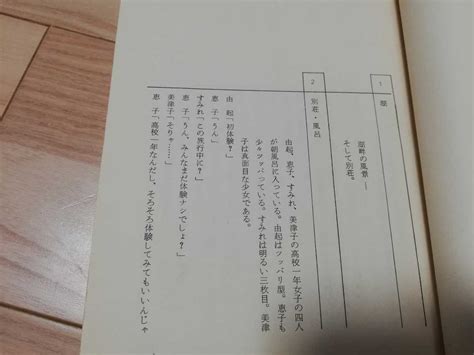 1
湖畔の風景―
そして別荘。
2 別荘・風呂
由起、恵子、すみれ、美津子の高校一年女子の四人
が朝風呂に入っている。由起はツッパリ型。恵子も
少々ツッパっている。すみれは明るい三枚目。美津
子は真面目な少女である。
由　起「初体験？」
恵　子「うん」
すみれ「この旅行中に？」
恵　子「うん、みんなまだ体験ナシでしょ？」
美津子「そりゃ……」
恵　子「高校一年なんだし、そろそろ体験してみてもいいんじゃ